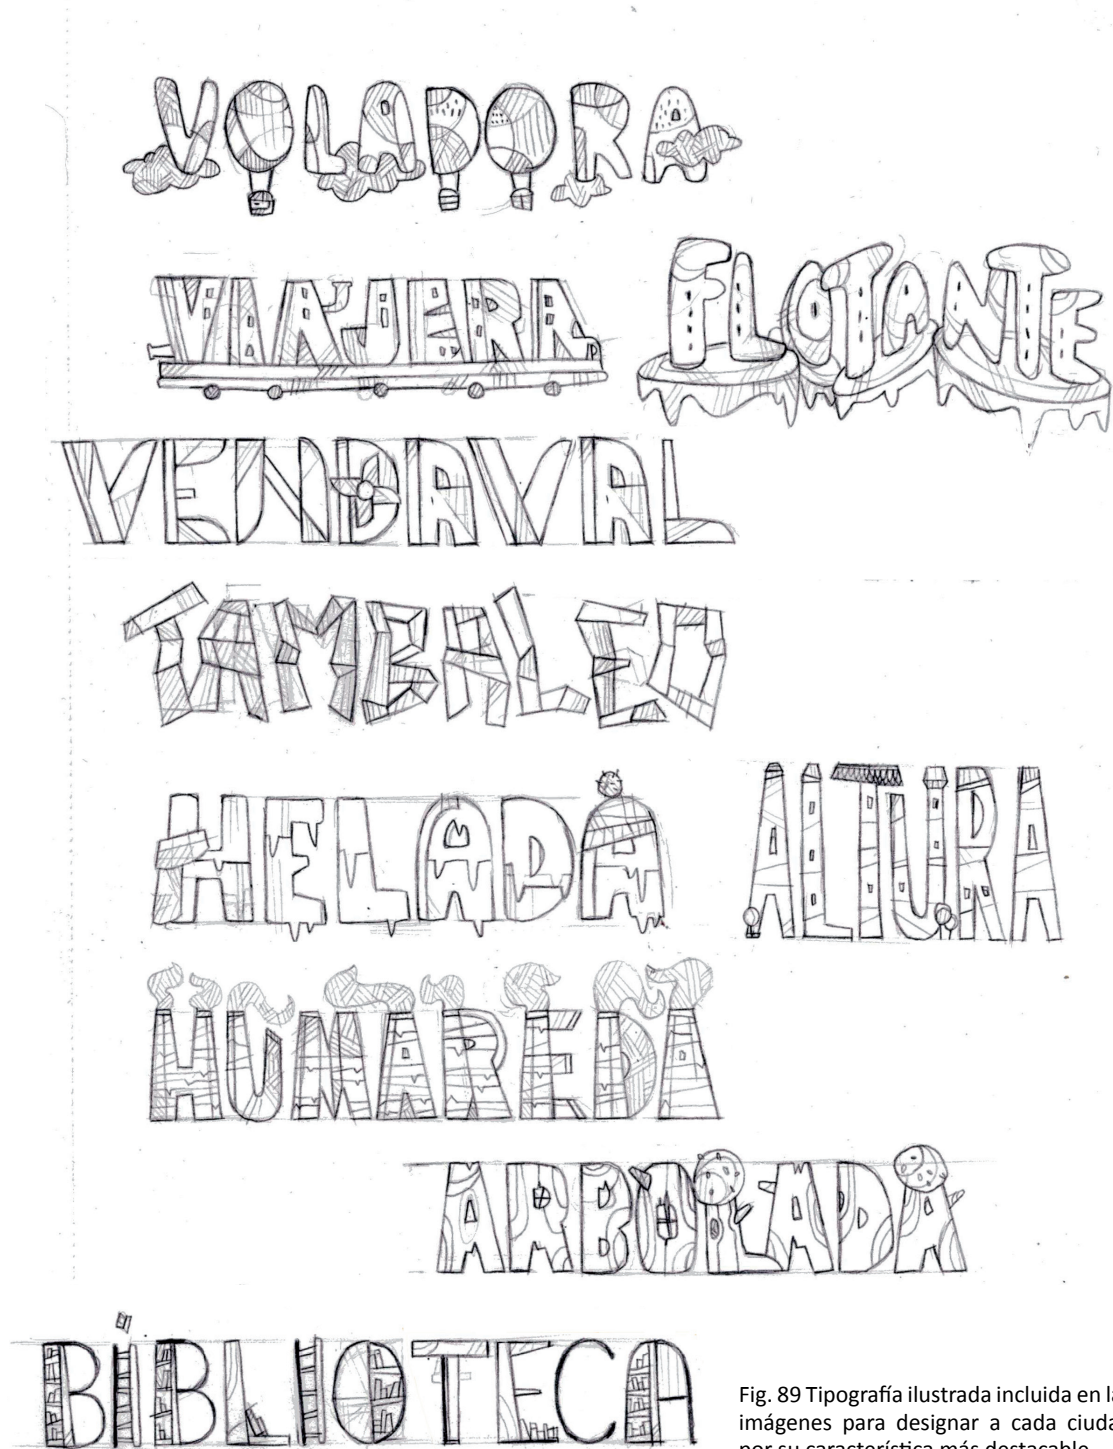 VOLADORA
VIAJERA
FLOTANTE
VENDAVAL
TAMBALEO
HELADA
ALTURA
HUMAREDA
ARBOLADA
BIBLIOTECA
Fig. 89 Tipografía ilustrada incluida en la
imágenes para designar a cada ciuda
por su característica más destacable